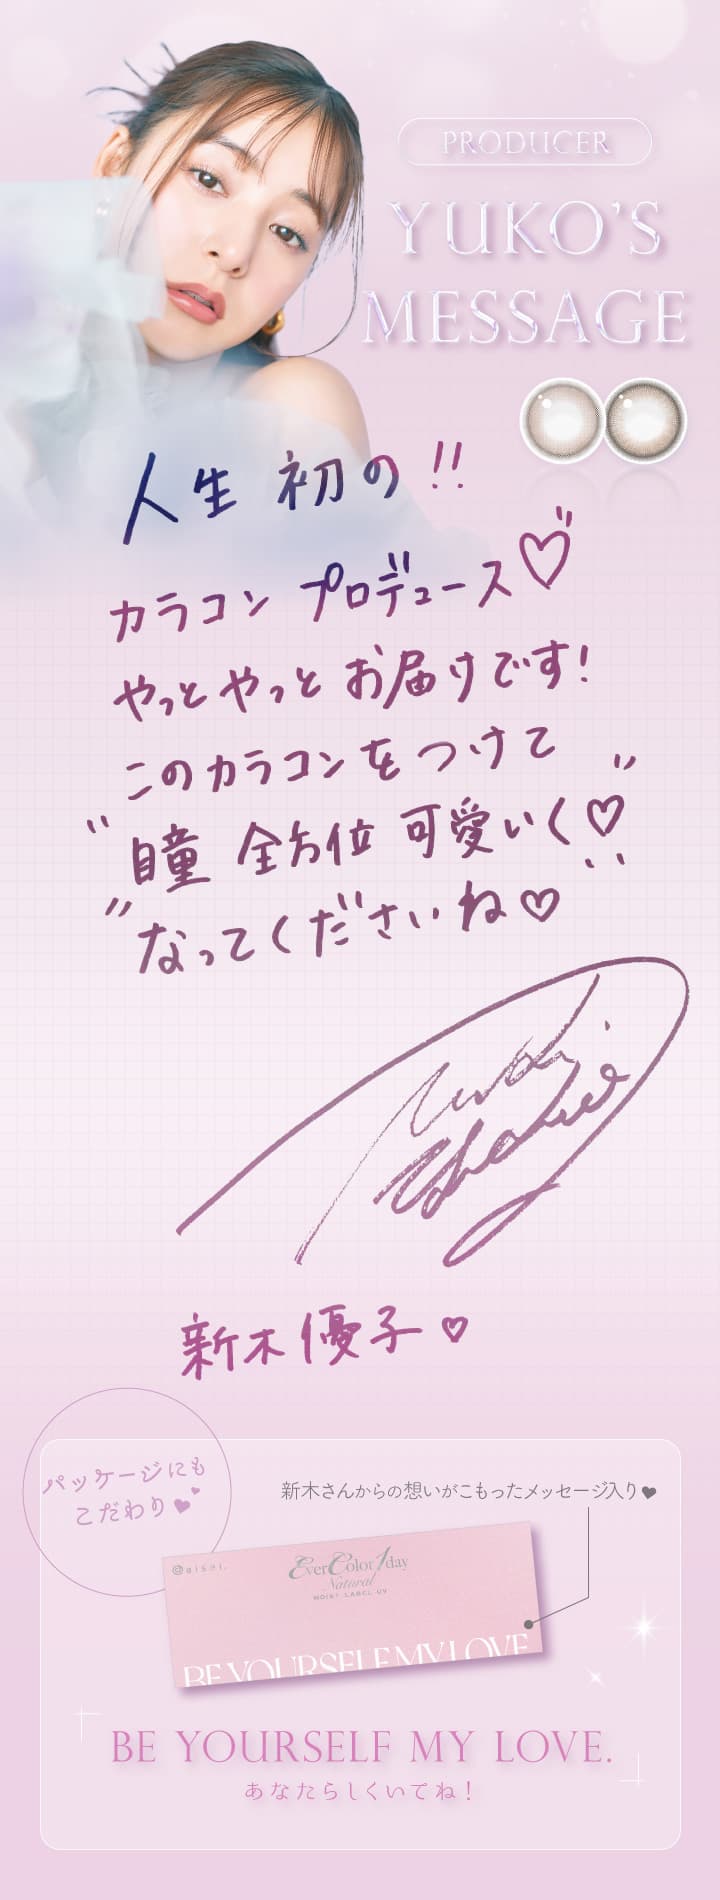 PRODUCER
YUKO'S
MESSAGE
人生 初の!!
カラコン プロデュース♡
やっとやっと お届けです!
このカラコンをつけて
瞳 全方位 可愛いく♡
なってくださいね♡
新木優子♡
パッケージにも
こだわり♥
新木さんからの想いがこもったメッセージ入り♥
@aisei.
EverColor1day
Natural
MOIST LABEL UV
BE YOURSELF MY LOVE
BE YOURSELF MY LOVE.
あなたらしくいてね!